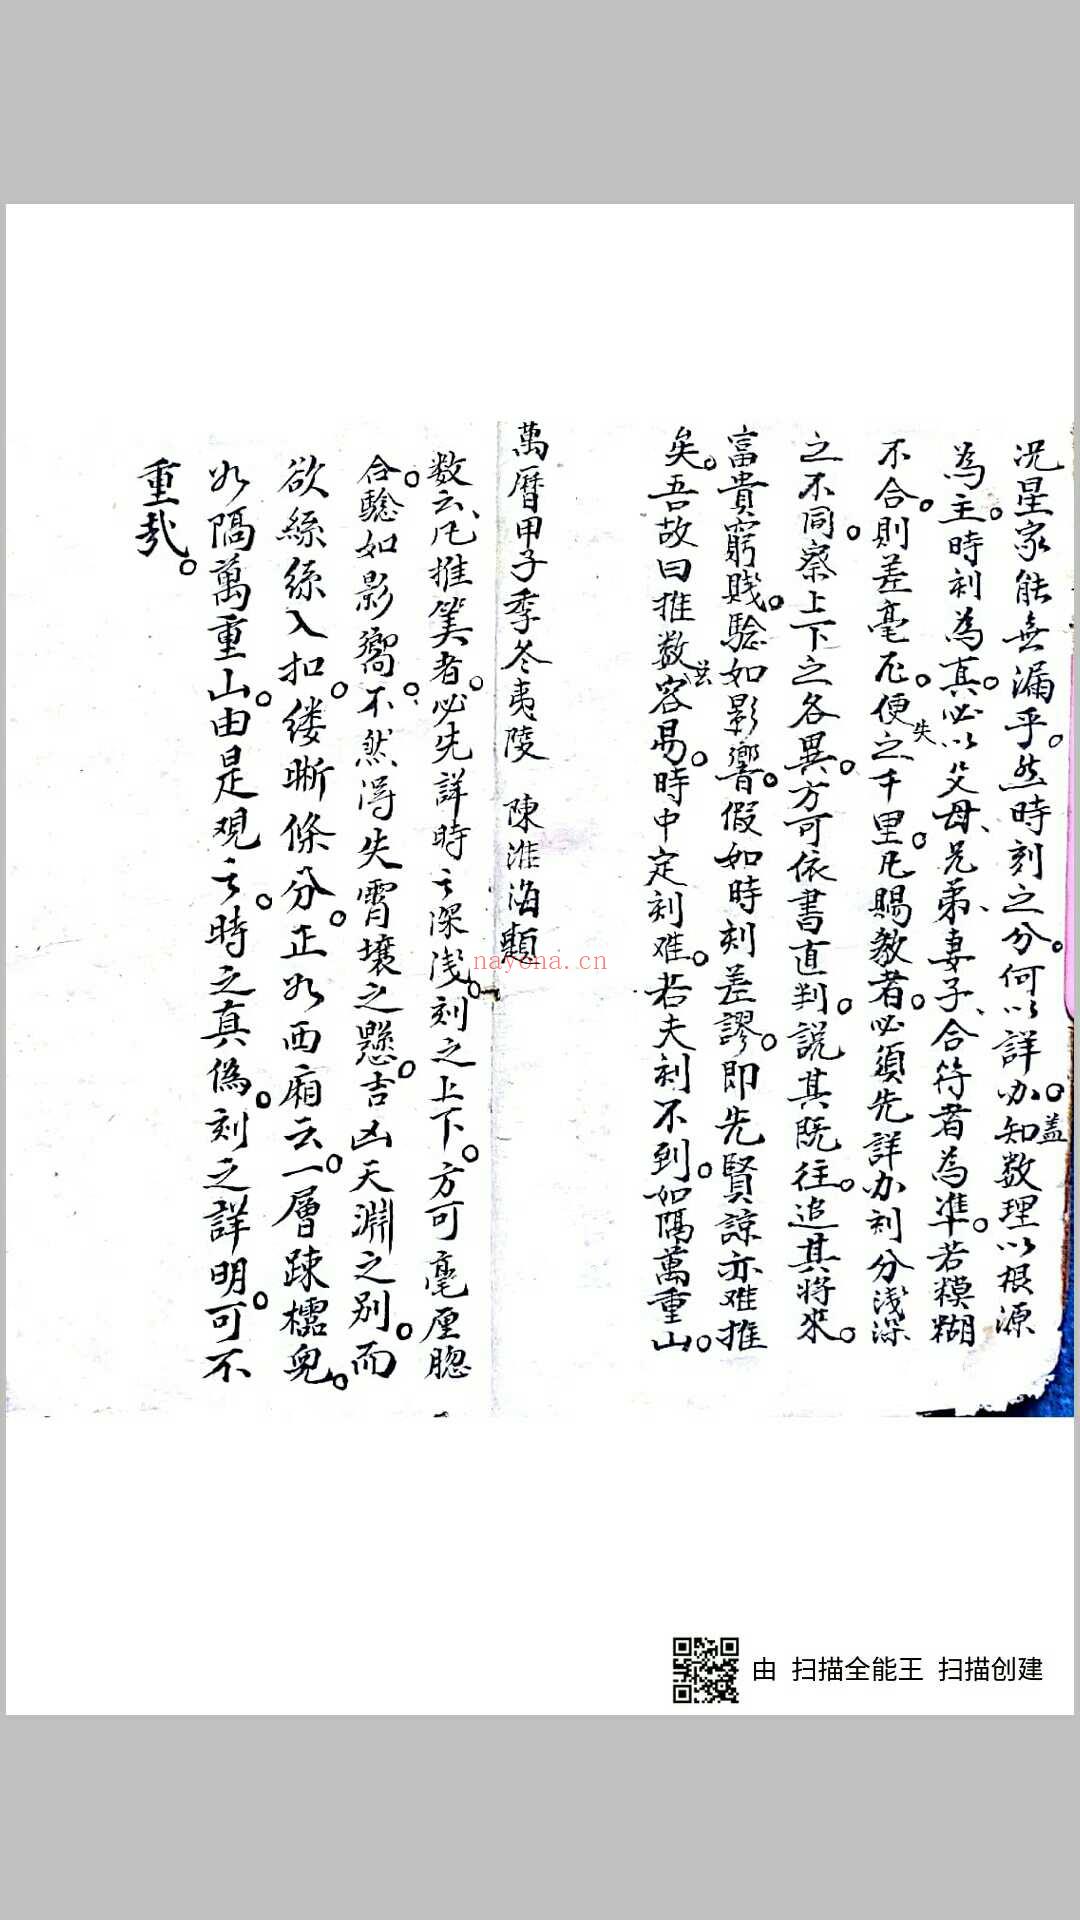 况星家能無漏乎。然時刻之分。何以詳办。盖知数理以根源
為主。時刻為真。必以父母、兄弟、妻子、合符者為準。若糢糊
不合。則差毫厘。便失之千里。凡賜教者。必須先詳办刻分淺深
之不同。察上下之各異。方可依書直判。說其既往。追其將來。
富貴窮賤。驗如影響。假如時刻差謬。即先賢諒亦难推
矣。吾故曰推数甚容易。時中定刻难。若夫刻不到。如隔萬重山。
萬曆甲子季冬夷陵 陳淮海題
数云、凡推筭者。必先詳時之深淺。刻之上下。方可毫厘脗
合。驗如影嚮。不然得失霄壤之懸。吉凶天淵之別。而
欲絲絲入扣。缕晰條分。正如西廂云。一層踈櫺兒。
如隔萬重山。由是观之。時之真偽。刻之詳明。可不
重哉。
nayona.cn
由 扫描全能王 扫描创建